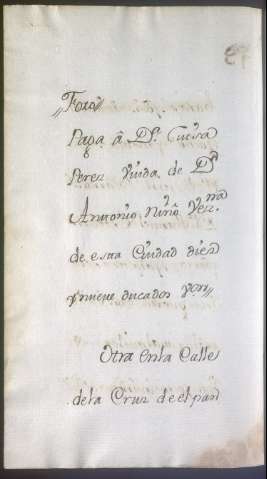 Paga â Dª. 
Perez Viuda de Dⁿ
Antonio Niño Vezⁿᵒ
de esta Ciudad diez
y nueve ducados
Otra en la Calle
de la Cruz de el pan